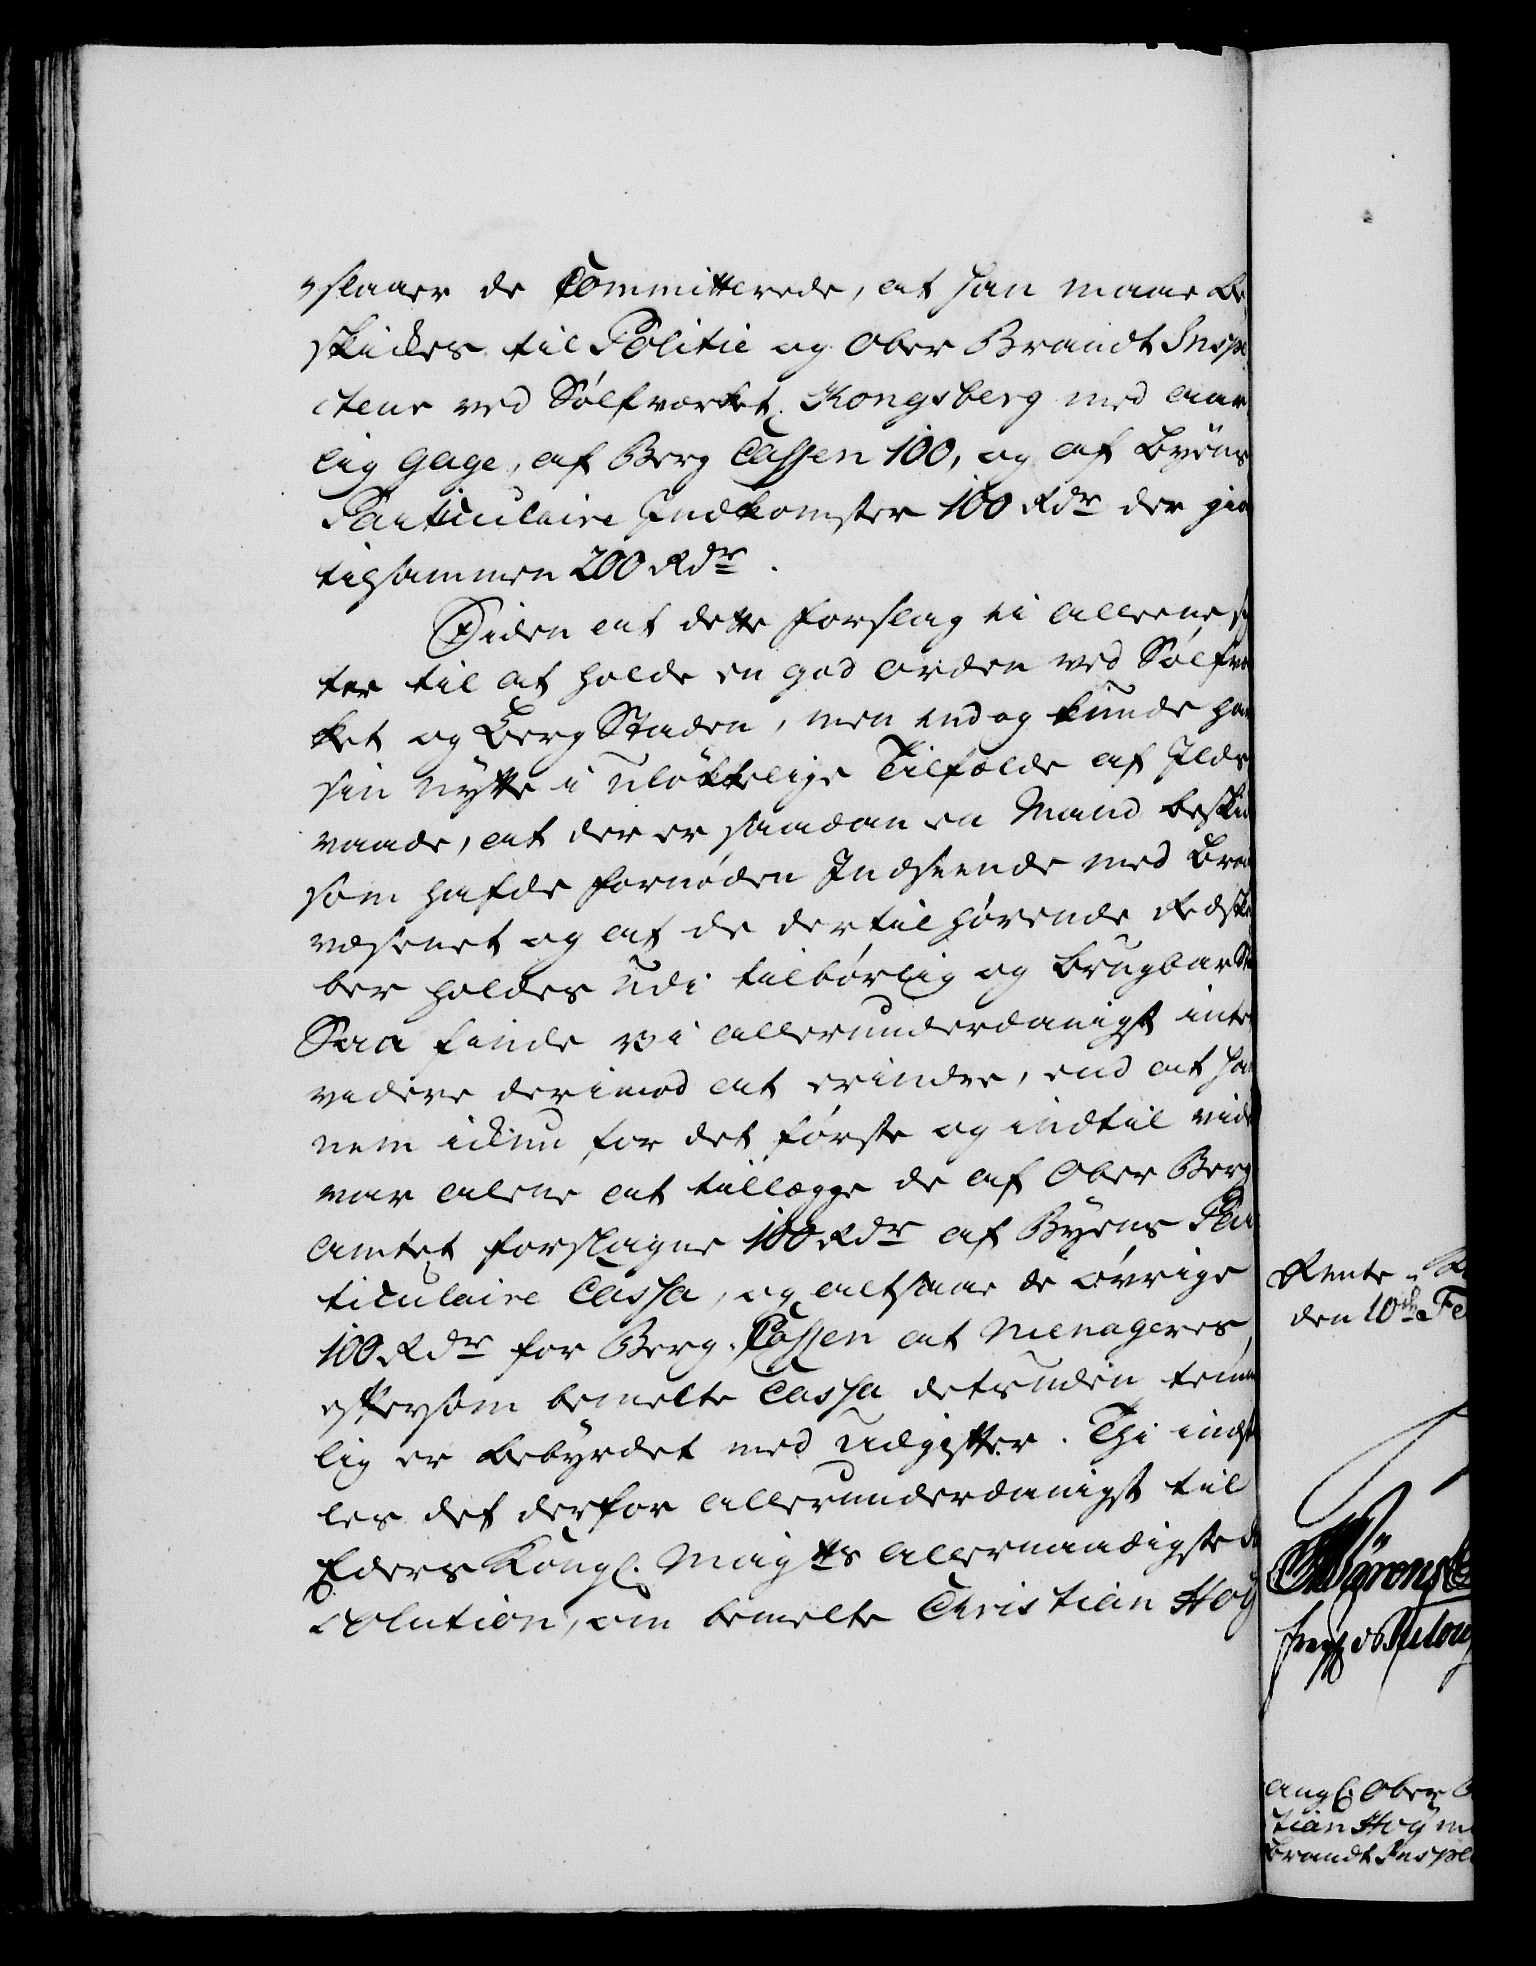 slaaer de Committerede, at han maae be
skikkes til Politie og Ober Brandt Inspe
cteur ved Sølfverket Kongsberg med aar
lig Gage, af Berg Cassen 100, og af Byens
Particulaire Indkomster 100 Rdr der giør
tilsammen 200 Rdr.
Siden at dette Forslag ei alleene sig
ter til at holde en god Orden ved Sølfver
ket og Berg Staden, men endog kunde have
sin Nytte i ulökkelige Tilfælde af Ilds
vaade, at der er saadan en Mand beskik
som hafde fornøden Indseende med Brand
væsenet og at de dertil hørende Redska
ber holdes udi tilbørlig og brugbar Sta
Saa finde vi allerunderdanigst intet
videre derimod at erindre, end at han
nem ickun for det første og indtil vide
var alene at tillægge de af Ober Berg
Amtet forslagne 100 Rdr af Byens Par
ticulaire Cassa, og altsaae de øvrige
100 Rdr for Berg-Cassen at menageres,
eftersom bemelte Cassa desuden temme
lig er bebyrdet med Udgifter. Thi indstil
les det derfor allerunderdanigst til
Eders Kongl. Mayts allernaadigste Re
solution, om bemelte Christian Hoÿ
Rente-Ka
den 10de Fe
angl. Ober B
tian Hoÿ m
Brandt Inspec